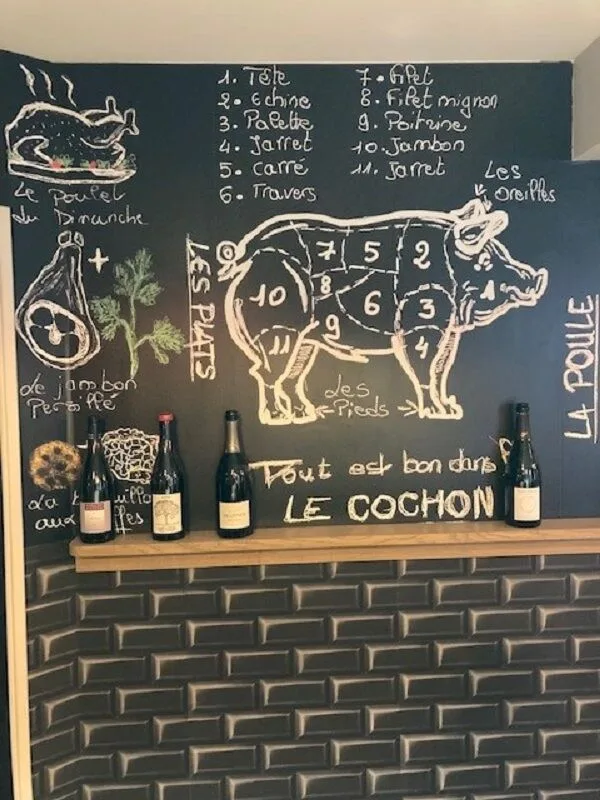 1. Tête
2. Echine
3. Palette
4. Jarret
5. Carré
6. Travers
7. Filet
8. Filet mignon
9. Poitrine
10. Jambon
11. Jarret
Les
Oreilles
Le poulet
du Dimanche
+
Le jambon
Persillé
La
aux
LES PLATS
7
5
2
8
10
6
3
1
9
11
4
Les
Pieds
Tout est bon dans
LE COCHON
LA POULE